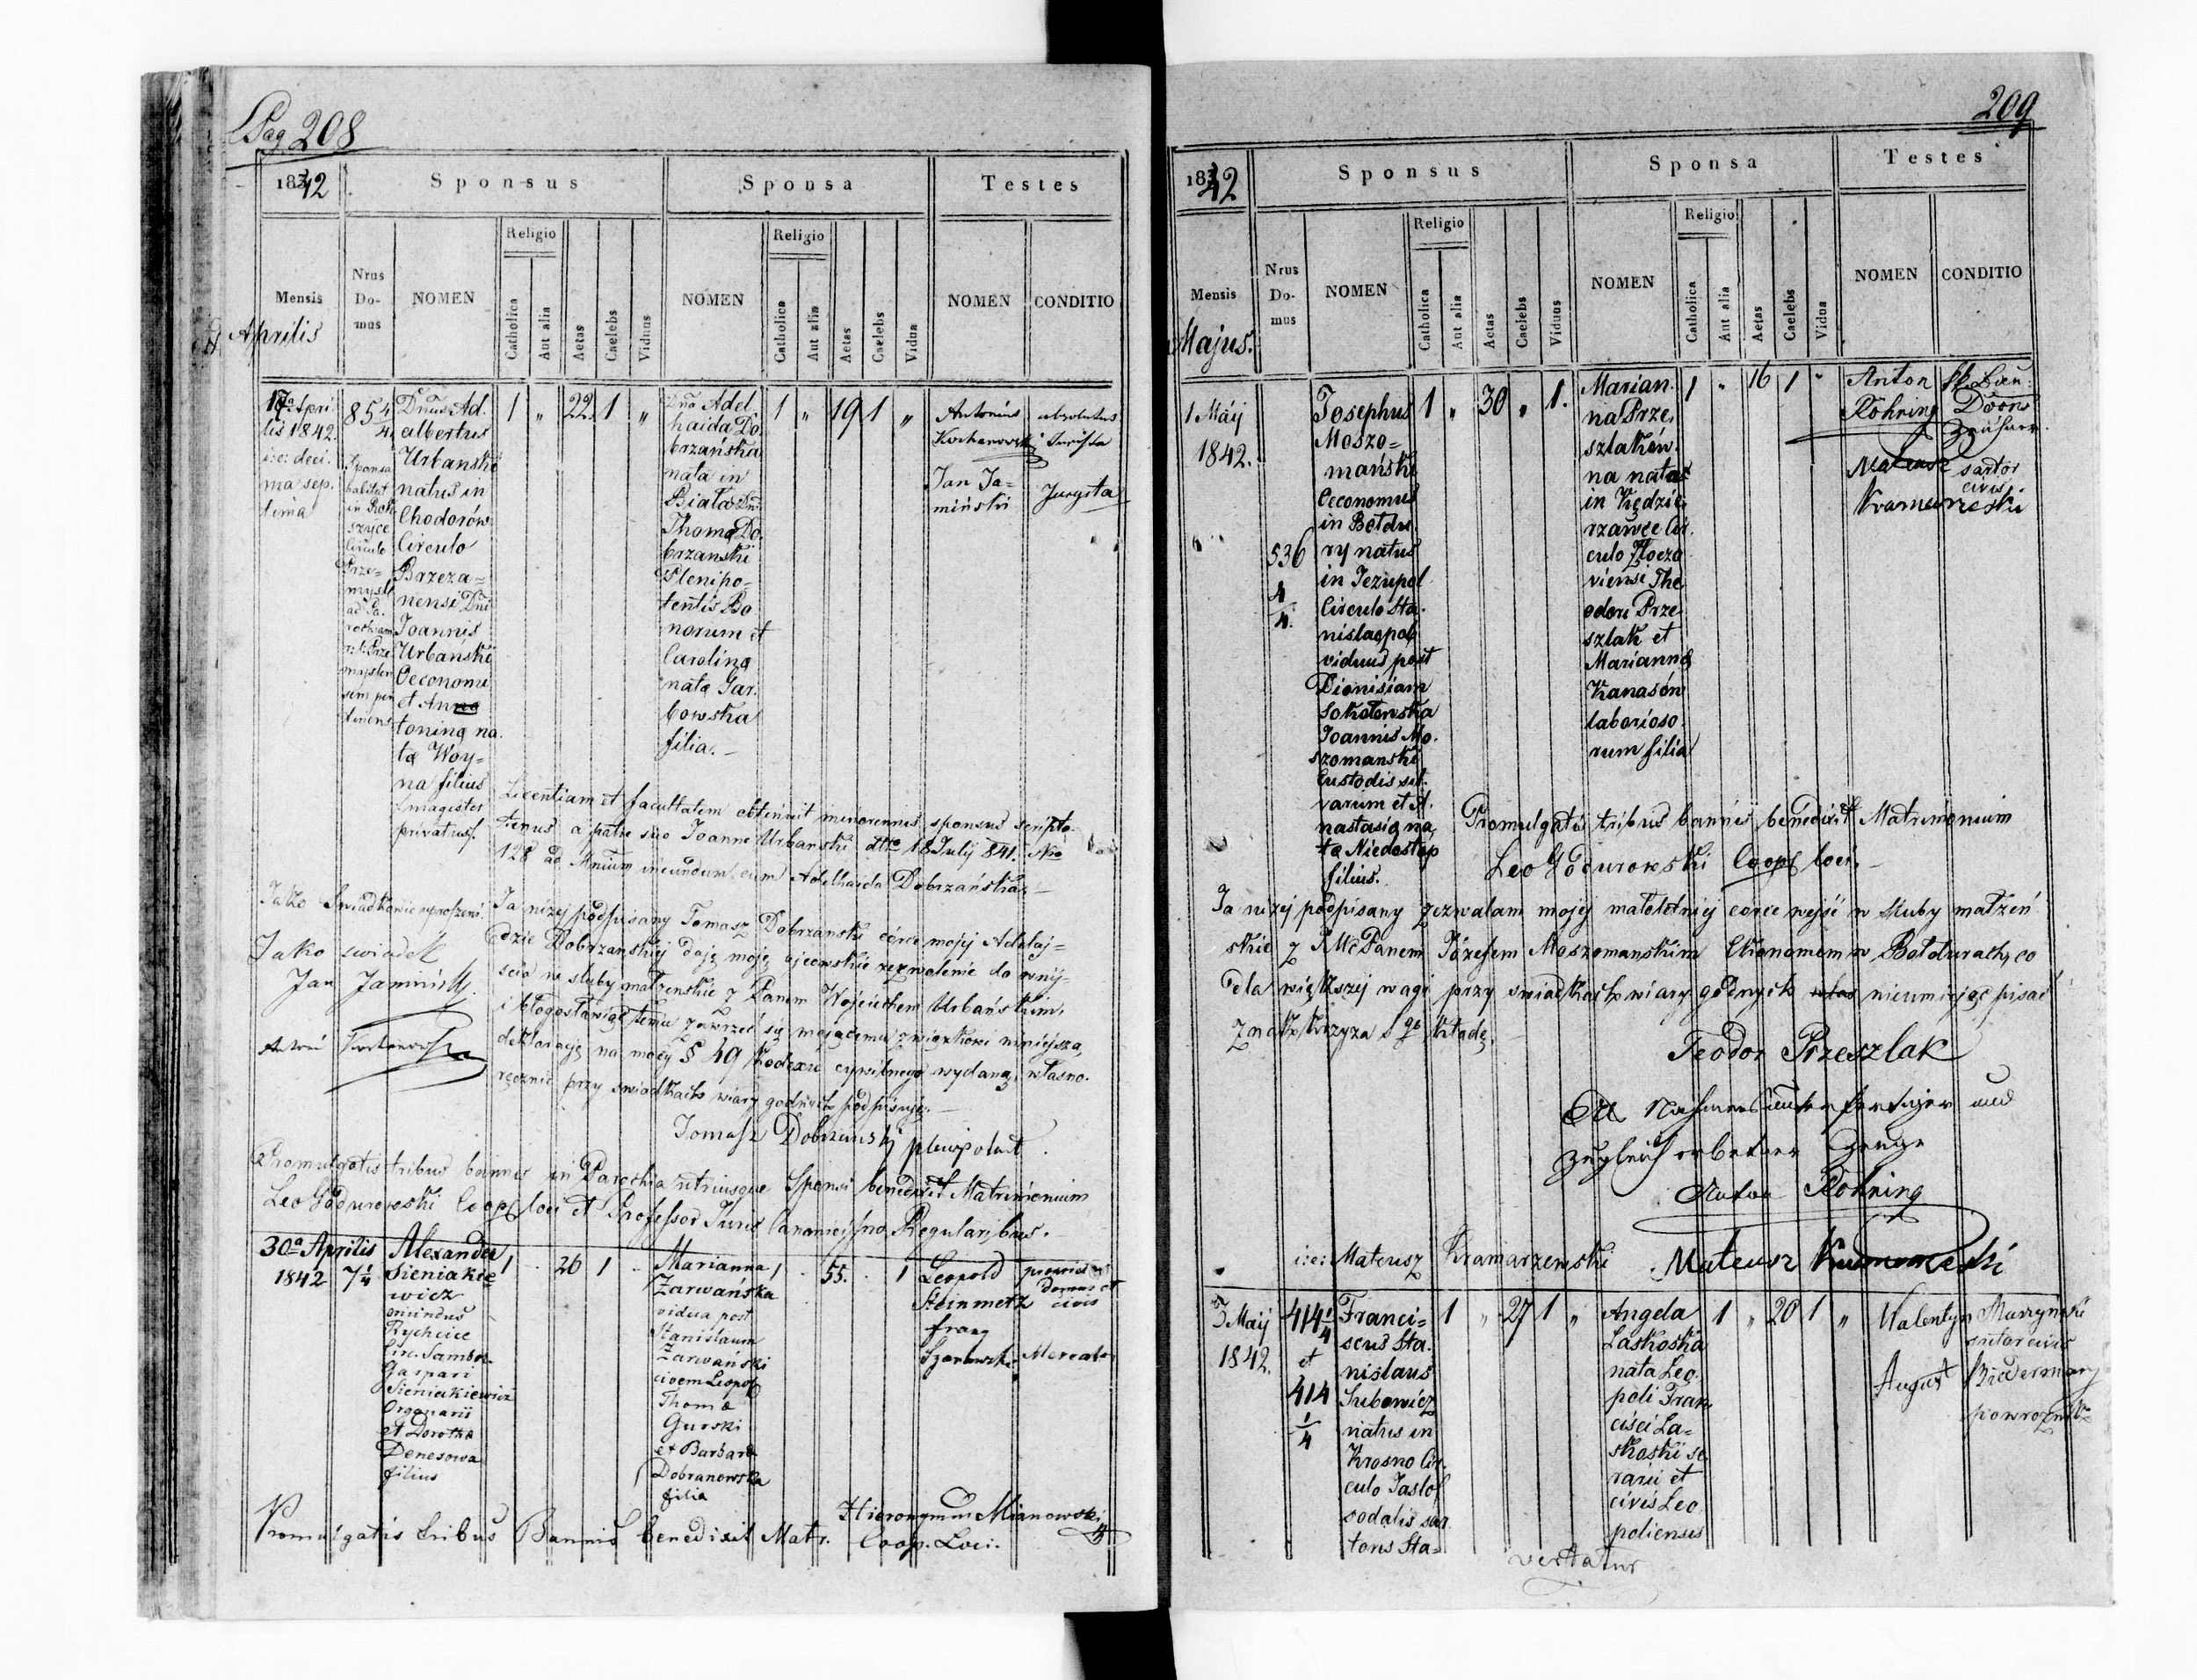 Pag 208
1842
Sponsus
Sponsa
Testes
Mensis
Aprilis
Nrus
Do-
mus
NOMEN
Religio
Catholica
Aut alia
Aetas
Caelebs
Viduus
NOMEN
Religio
Catholica
Aut alia
Aetas
Caelebs
Vidua
NOMEN
CONDITIO
17a Apri-
lis 1842.
i:e: deci-
ma sep-
tima
854
4.
Sponsa
habitat
in Rok
szyce
Circulo
Prze=
mysl
ad Pa-
rochiam
r: l: Prze
myslen
sem per
tinens
Dnus Ad-
albertus
Urbanski
natus in
Chodorów
Circulo
Brzeza=
nensi Dni
Joannis
Urbanski
Oeconomi
et An
tonina na-
ta Woy=
na filius
magister
privatus
1 „ 22. 1 „
Dna Adel
haida Do
brzańska
nata in
Biała Dni
Thoma Do
brzanski
Plenipo-
tentis Bo
norum et
Carolina
nata Gar-
bowska
filia.
1 „ 19 1 „
Antonius
Kochanowski
absolutus
Jurista
Jan Ja=
miński
Jurysta
Licentiam et facultatem obtinuit minorennis sponsus scripto-
tenus a patre suo Joanne Urbanski dtto 18 July 841. Nro
128 ad Mnium ineundum cum Adelhaida Dobrzańska.
Jako Swiadkowie uproszeni
Jako swiadek
Jan Jamiński
Antoni Kochanowski
Ja niżej podpisany Tomasz Dobrzanski córce mojej Adelaj=
dzie Dobrzanskiej daję moje ojcowskie zezwolenie do wnij-
scia w sluby małzenskie z Panem Wojciechem Urbańskim,
i błogosławiąc temu zawrzeć się mającemu związkowi niniejszą,
deklaracyę na mocy § 49 Kodexu cywilnego wydaną, własno-
ręcznie przy swiadkach wiary godnych podpisuję.
Tomasz Dobrzanski plenipotent
Promulgatis tribus bannis in Parochia utriusque Sponsi benedixit Matrimonium
Leo Godurowski Coop loci et Professor Juris Canonici pro Regularibus.
30a Aprilis
1842
7 1/4
Alexander
Sieniakie
wicz
oriundus
Rychcice
Circ. Sambor
Gaspari
Sieniakiewicz
Organarii
et Dorothea
Denesowa
filius
1 . 26 1 .
Marianna
Zarwańska
vidua post
Stanislaum
Zarwański
civem Leopol
Thoma
Gurski
et Barbara
Dobranowska
filia
1 . 55. . 1
Leopold
Steinmetz
domus et
civis
Franz
Mercator
Promulgatis tribus Bannis benedixit Matr.
Hieronymus Mianowski
Coop. Loci.
209
1842
Sponsus
Sponsa
Testes
Mensis
Majus.
Nrus
Do-
mus
NOMEN
Religio
Catholica
Aut alia
Aetas
Caelebs
Viduus
NOMEN
Religio
Catholica
Aut alia
Aetas
Caelebs
Vidua
NOMEN
CONDITIO
1 Maij
1842.
536
4
4.
Josephus
Moszo=
mański
Oeconomus
in Bołdu-
ry natus
in Jezupol
Circulo Sta-
nislaopol
viduus post
Dionisiam
Sokołowska
Joannis Mo-
szomanski
Custodis sil-
varum et A-
nastasia na-
ta Niedostap
filius.
1 „ 30 „ 1.
Marian-
na Prze-
szlaków-
na nata
in Kędzie
rzawce Cir-
culo Złoczo
viensi The
odori Prze
szlak et
Marianna
Kanasón
laborioso-
rum filia
1 „ 16 1 „
Anton
Röhring
Mateusz
Kramarzewski
sartor
civis
Promulgatis tribus bannis benedixit Matrimonium
Leo Godurowski Coop loci.
Ja niżej podpisany zezwalam mojej małoletniej corce wejść w sluby małżeń-
skie z JMc Panem Józefem Moszomanskim Ekonomem w Bołdurach, co
dla większej wagi przy swiadkach wiary godnych nieumiejąc pisać
znak krzyża Sgo kładę.
Teodor Przeszlak
Als Nahmensunterfertiger und
zugleich erbetener Zeuge
Anton Röhring
i:e: Mateusz Kramarzewski Mateusz Kramarzewski
3 Maij
1842.
414 1/4
et
414
1/4
Franci=
scus Sta-
nislaus
Lubowicz
natus in
Krosno Cir-
culo Jaslo
sodalis sar
toris Sta=
1 „ 27 1 „
Angela
Laskoska
nata Leo-
poli Fran
cisci La=
skoski se
rarii et
civis Leo
poliensis
1 „ 20 1 „
Walentyn Murzyński
sutor civis
August Biedermann
powroźnik
vertatur